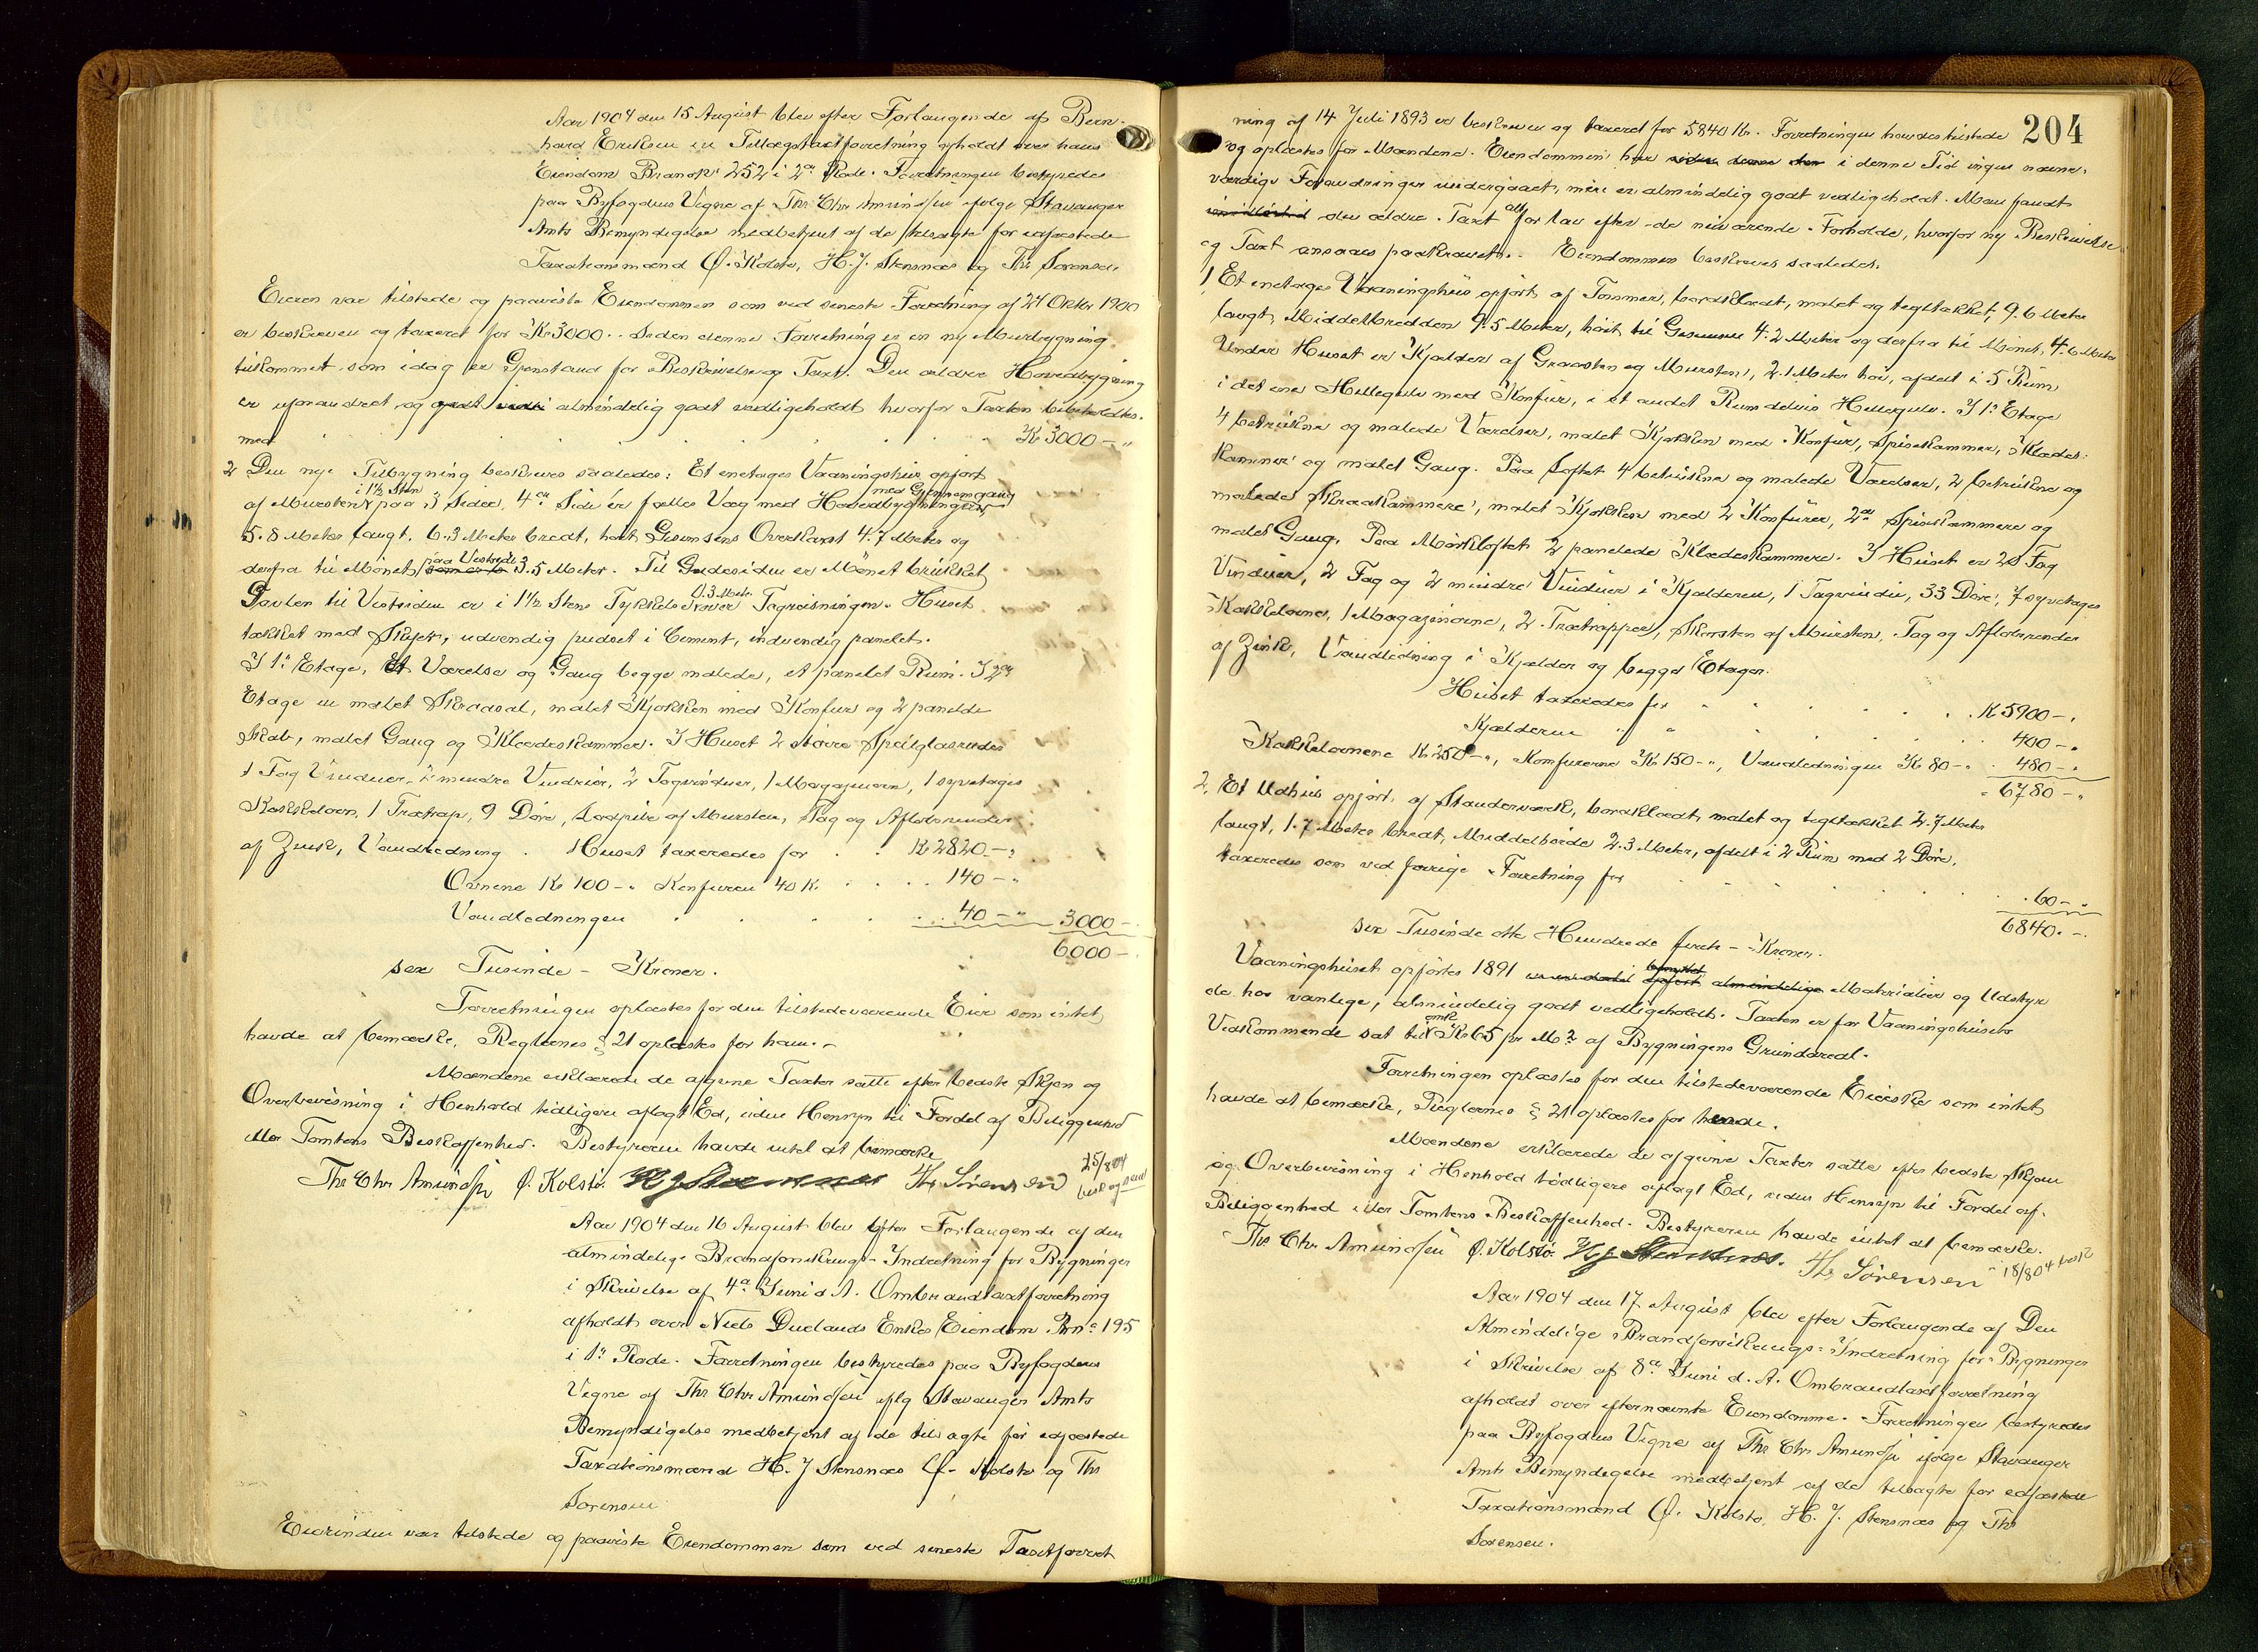 Aar 1904 den 15 August blev efter Forlangende af Bern-
hard Eriksen en Tillægstaxtforretning afholdt over hans
Eiendom Brandnr 252 i 2en Rode. Forretningen bestyredes
paa Byfogdens Vegne af Ths Chr Amundsen ifølge Stavanger
Amts Bemyndigelse medbetjent af de tilsagte før edfæstede
Taxationsmænd O. Kolstø, H. J. Stensnæs og Th. Sørensen.
Eieren var tilstede og paaviste Eiendommen som ved seneste Forretning af 24 Oktbr 1900
er beskreven og taxeret for Kr 3000.- Siden denne Forretning er en ny Murbygning
tilkommet som idag er Gjenstand for Beskrivelse og Taxt. Den ældre Hovedbygning
er uforandret og godt almindelig godt vedligeholdt hvorfor Taxten bibeholdes
med . . . . . . K 3000 - "
2 Den nye Tilbygning beskrives saaledes: Et enetages Vaaningshus opført
af Mursten i 1½ Sten paa 3 Sider, 4en Side er fælles Væg med Hovedbygningen med Gjennemgang
5.8 Meter langt, 6.3 Meter bredt, høit Gesimsens Overkant 4.7 Meter og
derfra til Mønet paa Vestside 3.5 Meter. Til Gadesiden er Mønet brukket
Gavlen til Vestsiden er i 1½ Stens Tykkelse 0.3 Meter over Tagreisningen. Huset
tækket med Skifer, udvendig pudset i Cement, indvendig panelet.
I 1e Etage, Et Værelse og Gang begge malede, et panelet Rum. I 2en
Etage en malet Skraasal, malet Kjøkken med Konfur og 2 panelede
Skab, malet Gang og Klædeskammer. I Huset 2 større Speilglasruder
1 Fag Vinduer, 2 mindre Vinduer, 2 Tagvinduer, 1 Magasinovn, 1 syvetages
Kakkelovn, 1 Trætrap, 9 Døre, Lodpibe af Mursten, Tag og Afløbsrender
af Zink, Vandledning . Huset taxeredes for . . K 2820 - "
Ovnene Kr 100 - " Konfuren 40 K. . . . . 140 - "
Vandledningen . . . . . 40 - " 3000 -
6000 -
sex Tusinde - Kroner.
Forretningen oplæstes for den tilstedeværende Eier som intet
havde at bemærke. Reglernes § 21 oplæstes for ham. -
Mændene erklærede de afgivne Taxter satte efter bedste Skjøn og
Overbevisning i Henhold tidligere aflagt Ed, uden Hensyn til Fordel af Beliggenhed
eller Tomtens Beskaffenhed. Bestyreren havde intet at bemærke
Ths Chr Amundsen O. Kolstø. H J Stensnæs Th. Sørensen 25/8 04
Aar 1904 den 16 August blev efter Forlangende af den
almindelige Brandforsikrings-Indretning for Bygninger
i Skrivelse af 4de Juni d A. Ombrandtaxtforretning
afholdt over Niels Duelands Enkes Eiendom Brno 195
i 1e Rode. Forretningen bestyredes paa Byfogdens
Vegne af Ths Chr Amundsen iflg Stavanger Amts
Bemyndigelse medbetjent af de tilsagte før edfæstede
Taxationsmænd H. J Stensnæs O. Kolstø og Ths
Sørensen
Eierinden var tilstede og paaviste Eiendommen som ved seneste Taxtforret
204
ning af 14 Juli 1893 er beskreven og taxeret for 5840 Kr. Forretningen havdes tilstede
og oplæstes for Mændene. Eiendommen har siden denne i denne Tid ingen nævne-
værdige Forandringer undergaaet, men er almindelig godt vedligeholdt. Man fandt
den ældre Taxt alt for lav efter de nuværende Forholde, hvorfor ny Beskrivelse
og Taxt ansaaes paakrævet. - Eiendommen beskrives saaledes.
1, Et enetages Vaaningshus opført af Tømmer, bordklædt, malet og tegltækket, 9.6 Meter
langt, Middelbredden 9.5 Meter, høit til Gesimsen 4.2 Meter og derfra til Mønet 4.6 Meter
Under Huset er Kjælder af Graasten og Mursten, 2.1 Meter høi, afdelt i 5 Rum
i det ene Hellegulv med Konfur, i et andet Rum delvis Hellegulv. I 1e Etage
4 betrukne og malede Værelser, malet Kjøkken med Konfur, Spisekammer, Klædes-
kammer og malet Gang. Paa Loftet 4 betrukne og malede Værelser, 2 betrukne og
malede Skraakammere, malet Kjøkken med 2 Konfurer, 2de Spiskammere og
malet Gang. Paa Mørkloftet 2 panelede Klædeskammere. I Huset er 20 Fag
Vinduer, 2 Fag og 2 mindre Vinduer i Kjælderen, 1 Tagvindu, 33 Døre, 7 syvetages
Kakkelovne, 1 Magazinovne, 2 Trætrapper, Skorsten af Mursten, Tag og Afløbsrender
af Zink, Vandledning i Kjælder og begge Etager.
Huset taxeredes for . . . . . K 5900 - "
Kjælderen " " . . . . 400 - "
Kakkelovnene K 250 - ", Konfurerne K 150 - ", Vandledningen K 80 - " . 480 - "
6780 - "
2, Et Udhus opført af Standerværk, bordklædt, malet og tegltækket 2.7 Meter
langt, 1.7 Meter bredt, Middelhøide 2.3 Meter, afdelt i 2 Rum med 2 Døre,
taxeredes som ved forrige Forretning for . . . . 60 - "
6840. -
sex Tusinde otte Hundrede firti - Kroner.
Vaaningshuset opførtes 1891 benyttet almindelige Materialier og Udstyr
de her vanlige, almindelig godt vedligeholdt. Taxten er for Vaaningshusets
Vedkommende sat til omtr Kr 65 pr M2 af Bygningens Grundareal.
Forretningen oplæstes for den tilstedeværende Eierske som intet
havde at bemærke, Reglernes § 21 oplæstes for hende.
Mændene erklærede de afgivne Taxter satte efter bedste Skjøn
og Overbevisning i Henhold tidligere aflagt Ed, uden Hensyn til Fordel af
Beliggenhed eller Tomtens Beskaffenhed. Bestyreren havde intet at bemærke.
Ths Chr Amundsen O. Kolstø H J Stensnæs. Th. Sørensen 18/8 04 besk
Aar 1904 den 17 August blev efter Forlangende af Den
Almindelige Brandforsikrings-Indretning for Bygninger
i Skrivelse af 8de Juni d. A. Ombrandtaxtforretning
afholdt over efternævnte Eiendomme. Forretningen bestyredes
paa Byfogdens Vegne af Ths Chr Amundsen ifølge Stavanger
Amts Bemyndigelse medbetjent af de tilsagte før edfæstede
Taxationsmænd O. Kolstø, H. J. Stensnæs og Ths
Sørensen.